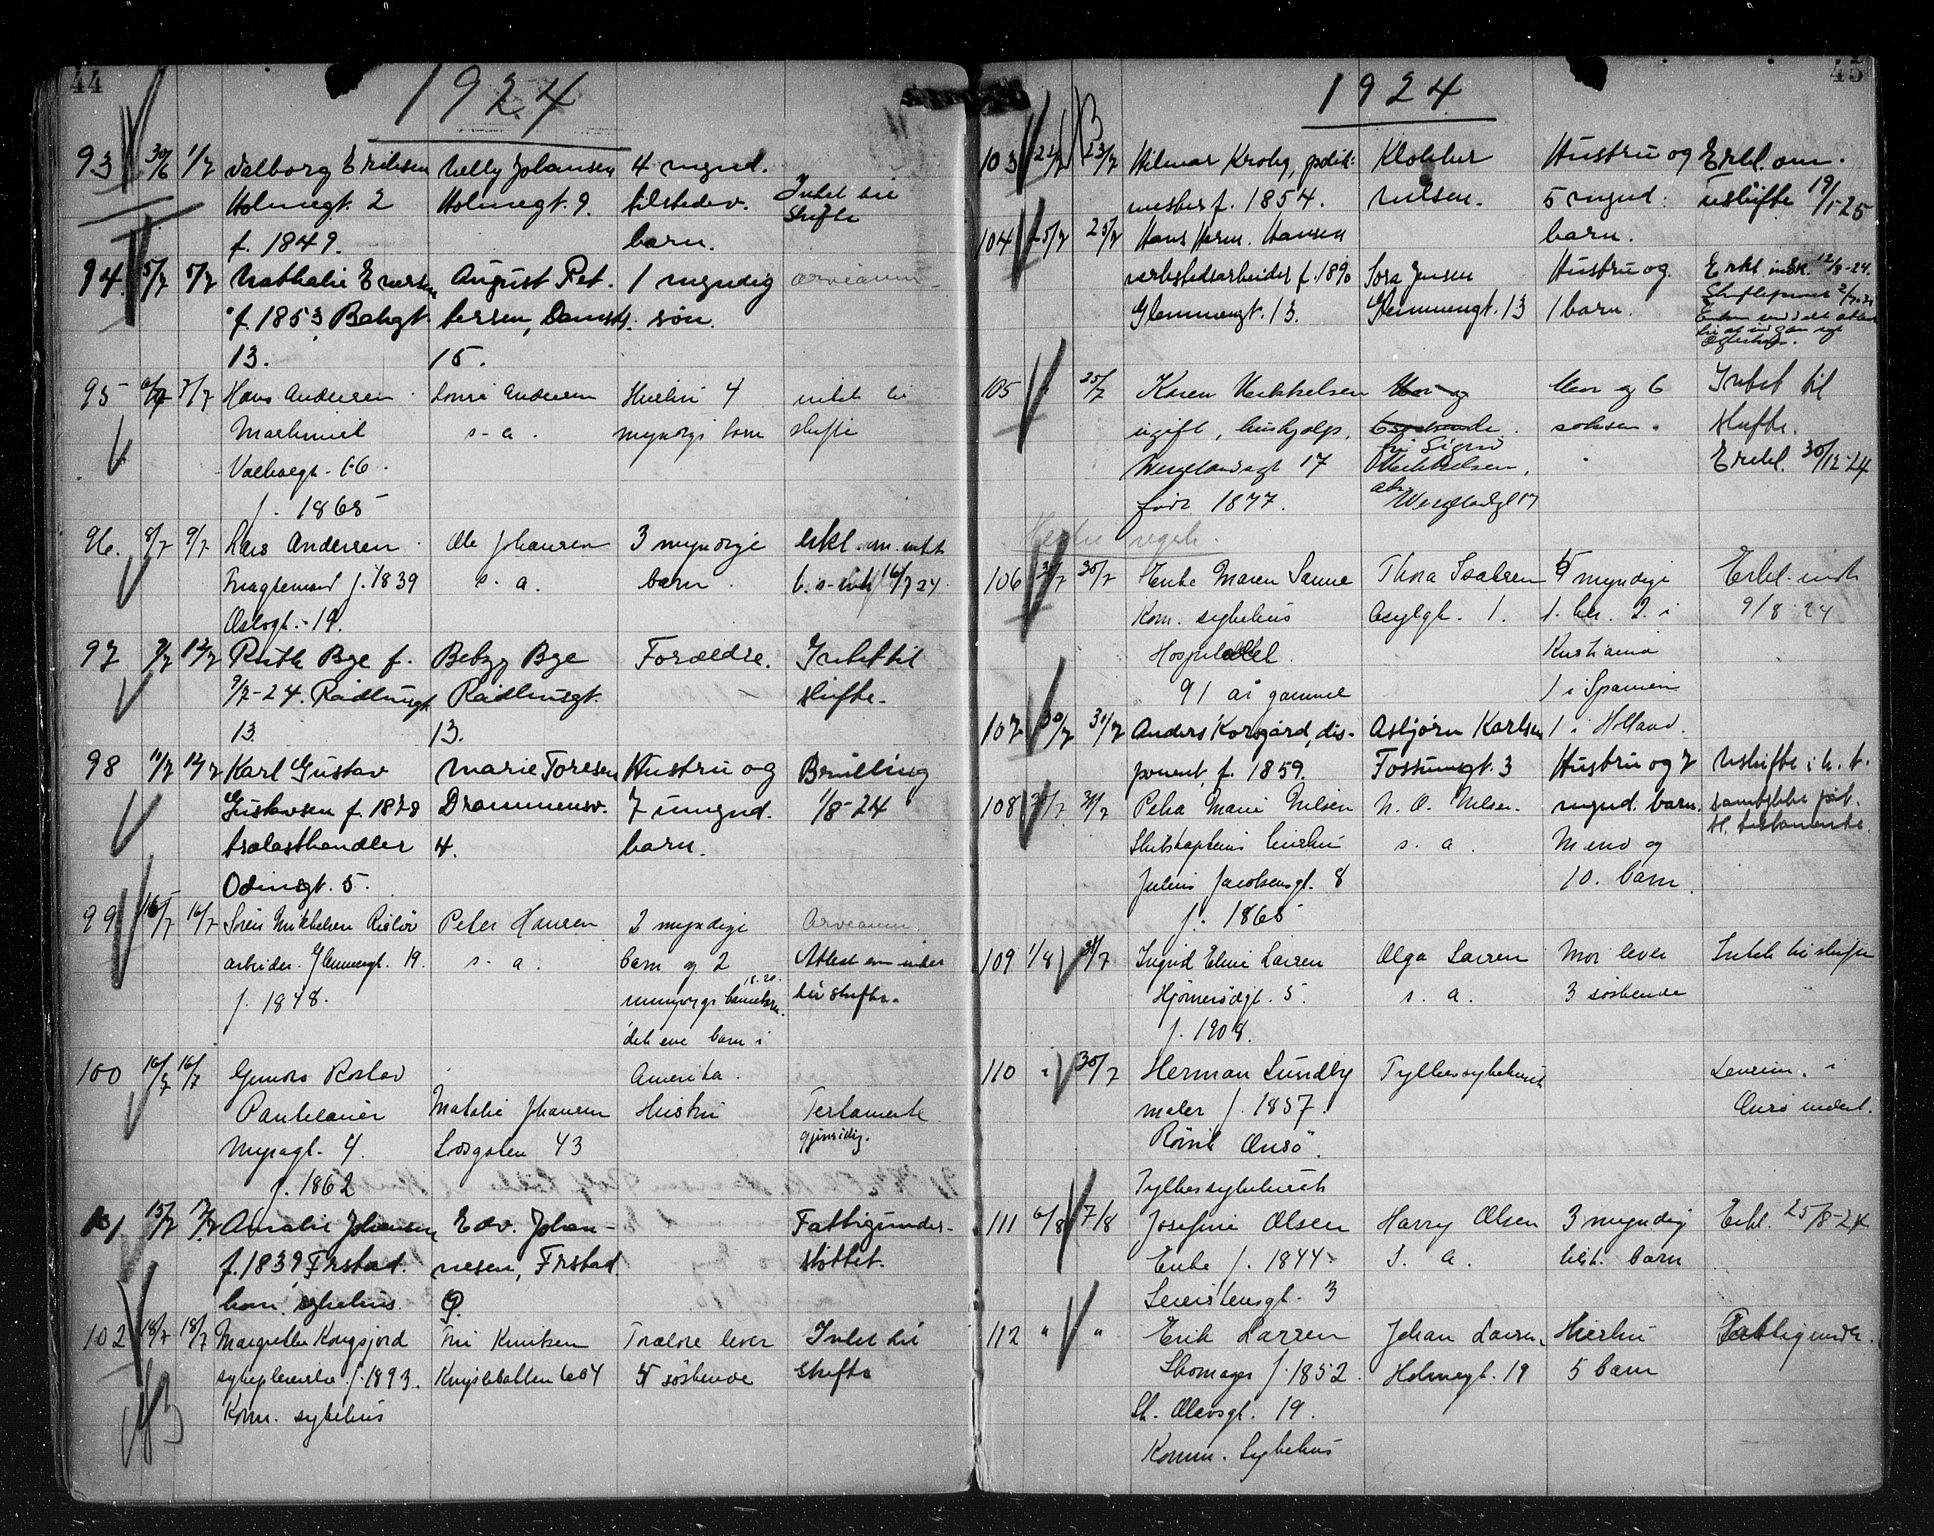 44
1924
93 30/6 1/7 Valborg Eriksen Nelly Johansen 4 mynd.
Holmegt. 2 Holmegt. 9. tilstedev. Intet til
f. 1849. barn. skifte
94. 5/7 5/7 Nathalie Evertsen August Pet- 1 myndig arveanm.
f. 1853, Bakgt. tersen, Damstr. søn.
13. 15.
95 7/7 Hans Andersen Lovise Andersen Hustru 4 intet til
s. a. myndige barn skifte
66.
f. 1865
96. 8/7 9/7 Lars Andersen Ole Johansen 3 myndige erkl. om intet
f. 1839 s. a. barn 16/7 24
Oslogt. 19.
97 9/7 12/7 Ruth Bye f. Bebzy Bye Forældre. Intet til
9/7-24. Raadhusgt. Raadhusgt. skifte.
13. 13.
98 11/7 12/7 Karl Gustav Marie Toresen Hustru og Bevilling
Gustavsen f. 1878 Drammensv. 7 umynd. 1/8-24
trælasthandler 4. barn.
Odinsgt. 5.
99 15/7 16/7 Søren Mikkelsen Risløv Peter Hansen 2 myndige Arveanm.
arbeider. Glemmengt. 19. s. a. barn og 2 Attest om intet
f. 1848. umyndige barnebarn. til skifte.
det ene barn i
100 16/7 16/7 Gunda Rostad Amerika.
Natalie Johansen Hustru Testamente
Nygagt. 4. Lodsgaten 43 gjensidig.
f. 1862
101 15/7 17/7 Amalie Johansen Edv. Johan- Fattigunder-
f. 1839, Frstad. nesen, Frstad. støttet.
kom. sykehus. 9.
102 18/7 18/7 Margrethe Kongsfjord Foreldre lever Intet til
sykepleierske f. 1893. 5 søskende skifte
Kom. sykehus
45
1924
103 22/7 23/7 Hilmar Krohg, politi- Klokker Hustru og Erkl. om
mester f. 1854. Nilsen. 5 mynd. uskifte 19/1-25
104 25/7 25/7 Hans Herm. Hansen barn.
verkstedsarbeider f. 1890 Tora Jensen Hustru og Erkl. insk. 12/8-24.
Glemmengt. 13. Glemmengt. 13 1 barn. Skifteprove
105 25/7 Karen Mikkelsen Mor og Mor og 6 Intet til
ugift, hushjelp, 6 søskende. søsken. skifte.
Wergelandsgt 17 frk Sigrid Mikkelsen, Erkl. 30/12-24
født 1877. Wergelandsgt 17
106 30/7 30/7 Enke Maren Sanne Thora Isaksen 5 myndige Erkl. indk
Kom. sykehus Asylgt. 1. 2 i 9/8 24
Hospitalet. Kristiania
91 år gammel 1 i Spanien
107 30/7 31/7 Anders Korsgård, dis- Asbjørn Karlsen 1 i Holland.
ponent f. 1859. Fossumsgt. 3 Hustru og 7 Uskifte i h. t.
108 30/7 31/7 Petra Marie Nilsen N. O. Nilsen. mynd. barn. samtykke fåt.
Skibskapteins hustru s. a. Mand og
Julius Jacobsensgt. 8 10. barn.
f. 1865
109 1/8 31/7 Ingrid Eline Larsen Olga Larsen Mor lever Intet til skifte
5. s. a. 3 søskende
f. 1908.
110 30/7 Herman Lundby Fylkessykehuset
maler f. 1857. Onsø
Rørvik Onsø.
Fylkessykehuset
111 6/8 7/8 Josefine Olsen Harry Olsen 3 myndig Erkl. 25/8-24
Enke f. 1844. s. a. barn
3
112 " " Erik Larsen Johan Larsen, Hustru Fattigunderst.
Skomager f. 1852. Holmegt. 19 5 barn
St. Olavsgt. 19.
Komm. Sykehus